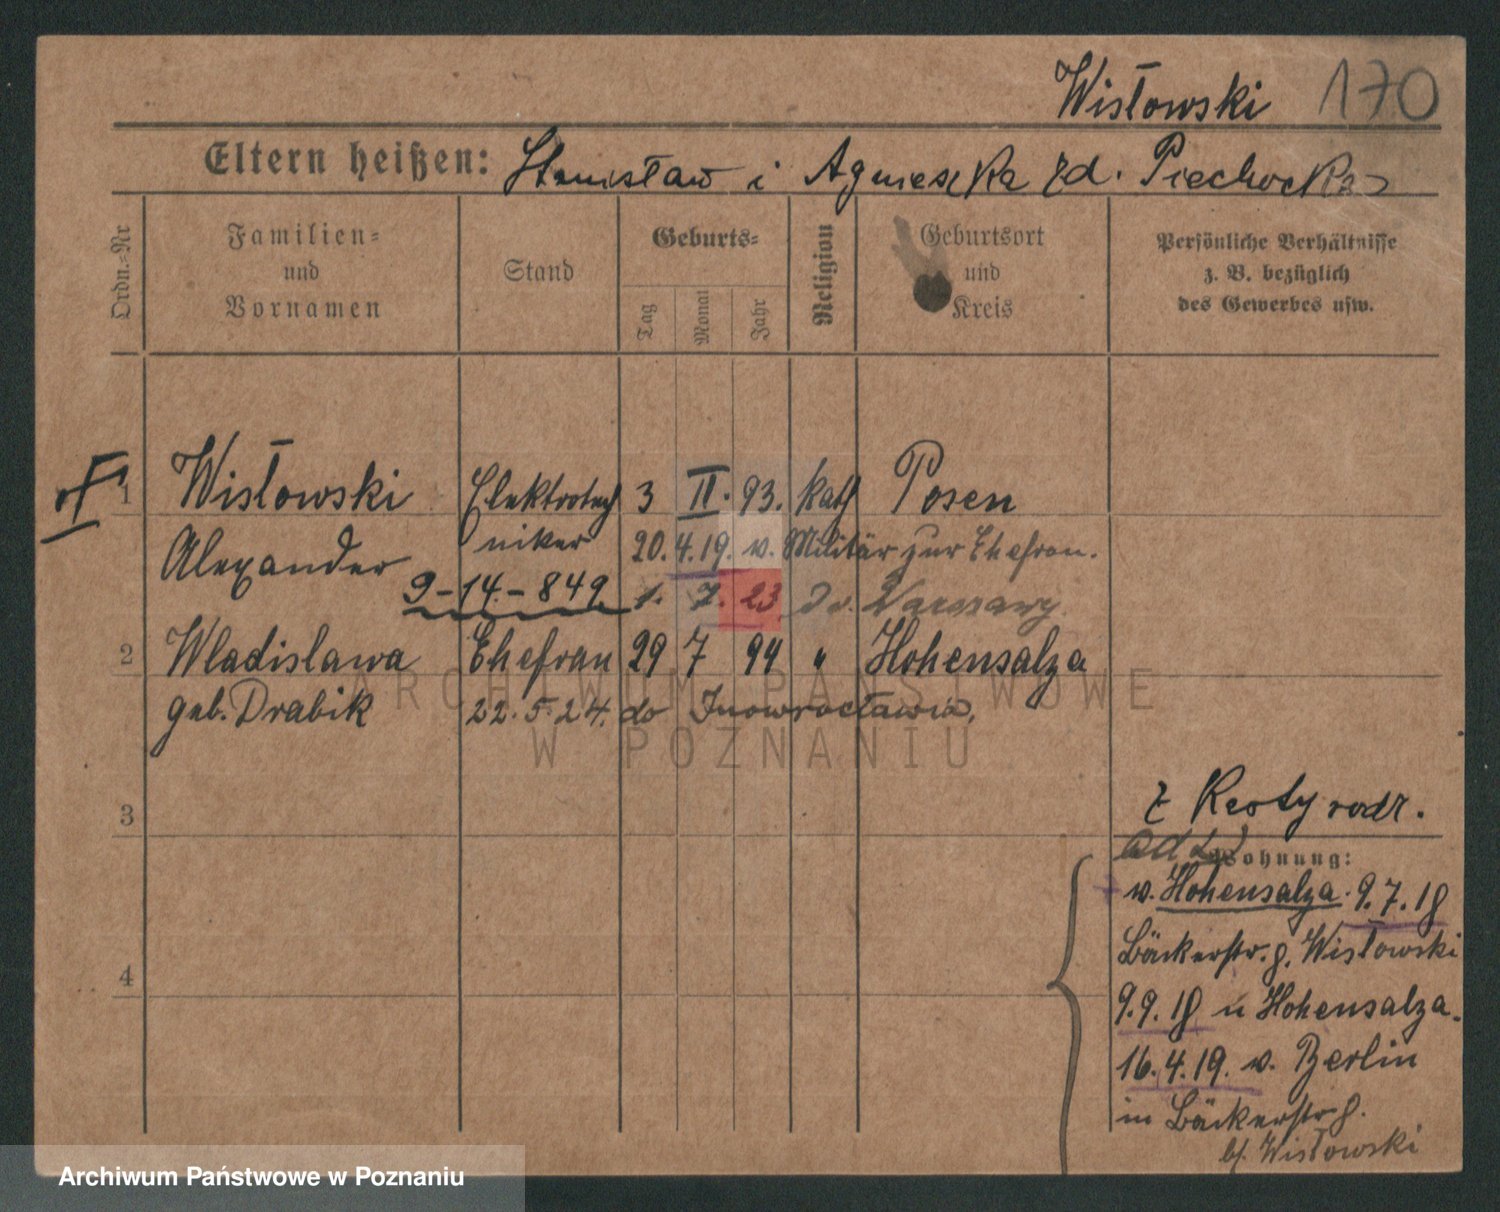 Wisłowski 170
Eltern heißen: Stanisław i Agnieszka zd. Piechocka
Ordn.-Nr
Familien- und Vornamen
Stand
Geburts-
Tag Monat Jahr
Religion
Geburtsort und Kreis
Persönliche Verhältnisse z. B. bezüglich des Gewerbes usw.
1 Wisłowski Elektrotech 3 II. 93. kath Posen
Alexander niker 20.4.19. v. Militär zur Ehefrau.
9-14.-849. 1. 7. 23 v. Warszawy
2 Wladislawa Ehefrau 29 7 94 " Hohensalza
geb. Drabik 22.5.24. do Inowrocławia.
ARCHIWUM PAŃSTWOWE
W POZNANIU
3
z Karty rodz.
ad 2) Wohnung:
v. Hohensalza. 9.7.18
Bäckerstr. 8. Wisłowski
4
9.9.18 n Hohensalza.
16.4.19. v. Berlin
in Bäckerstr 8.
b/. Wisłowski
Archiwum Państwowe w Poznaniu